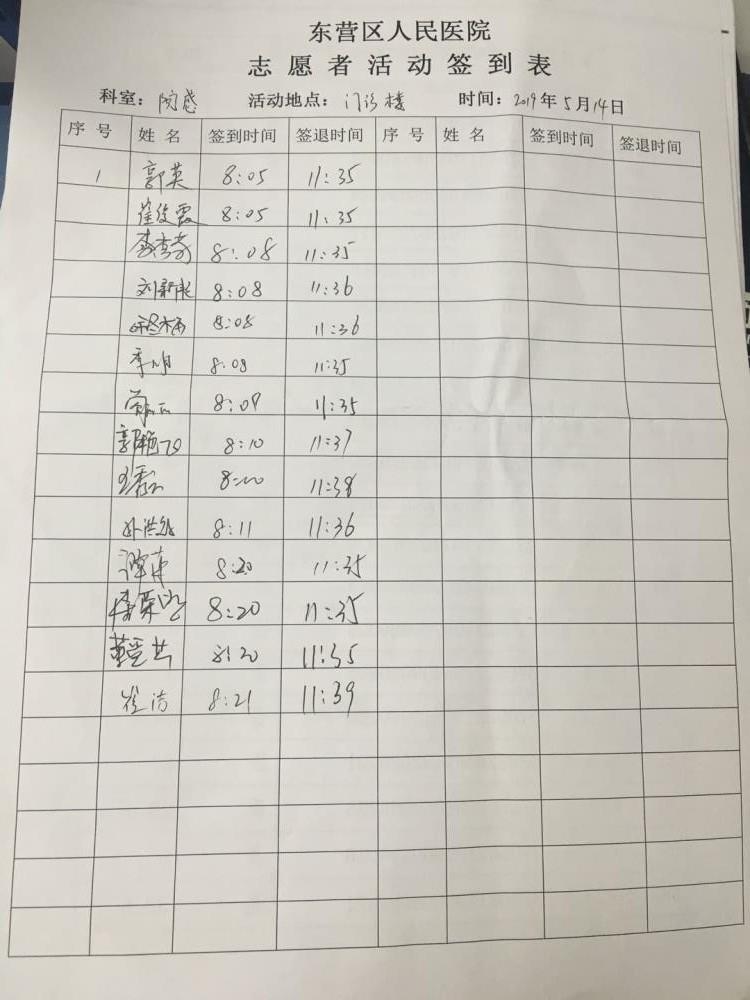 东营区人民医院
志愿者活动签到表
科室：院感 活动地点：门诊楼 时间：2019年5月14日
序号 姓名 签到时间 签退时间 序号 姓名 签到时间 签退时间
1 郭英 8:05 11:35
崔俊霞 8:05 11:35
8:08 11:35
8:08 11:36
8:08 11:36
李明 8:09 11:35
8:09 11:35
8:10 11:37
11:38
孙洪 8:11 11:36
谭莲 8:20 11:35
8:20 11:35
8:20 11:35
崔洁 8:21 11:39